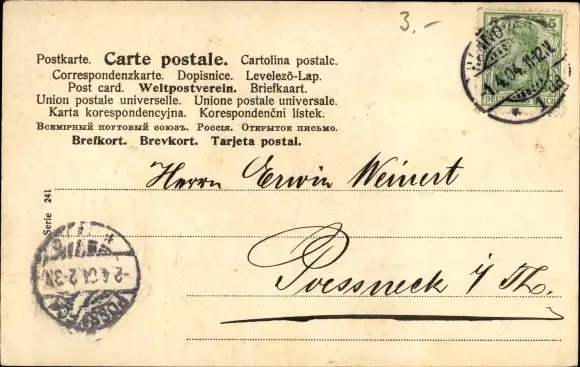 3.-
5 5
1.4.04. 11-12V.
Postkarte. Carte postale. Cartolina postale.
Correspondenzkarte. Dopisnice. Levelező-Lap.
Post card. Weltpostverein. Briefkaart.
Union postale universelle. Unione postale universale.
Karta korespondencyjna. Korespondenční lístek.
Всемірный почтовый союзъ. Россія. Открытое письмо.
Brefkort. Brevkort. Tarjeta postal.
Herrn Erwin Weinert
Serie 241
Poessneck i/Th.
-2.4.04. 2-3N